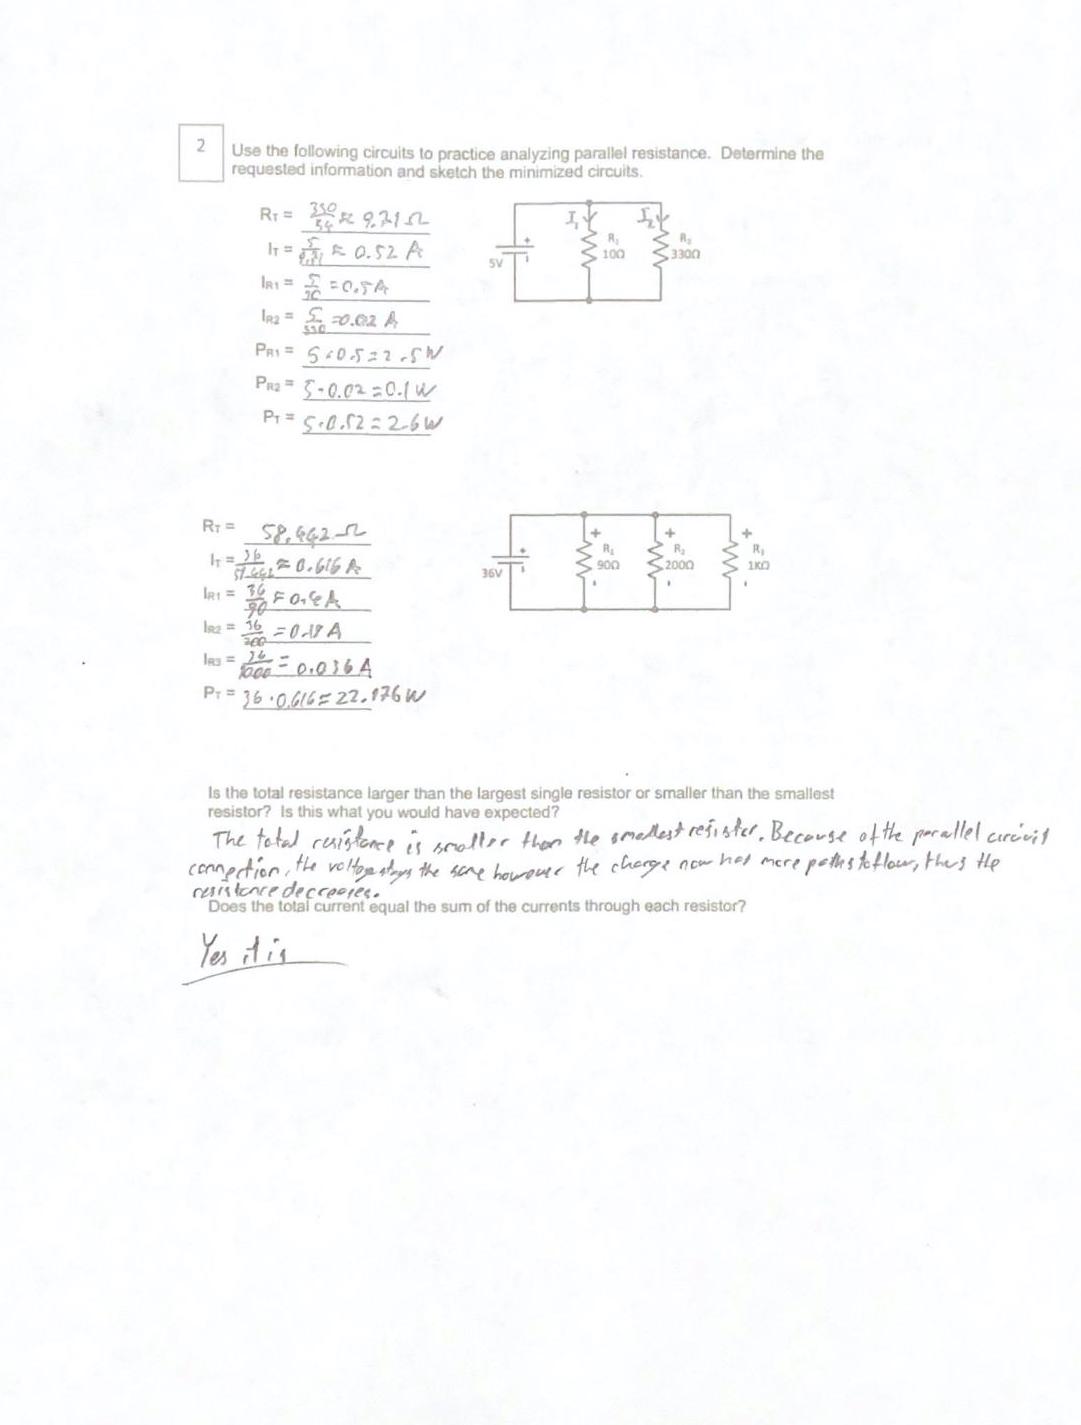 2
Use the following circuits to practice analyzing parallel resistance. Determine the
requested information and sketch the minimized circuits.
RT = 330/34 ≈ 9.71 Ω
IT = 5/9.71 ≈ 0.52 A
IR1 = 5/10 = 0.5A
IR2 = 5/330 = 0.02 A
PR1 = 5·0.5 = 2.5W
PR2 = 5·0.02 = 0.1 W
PT = 5·0.52 = 2.6W
I1 I2
5V
R1
10Ω
R2
330Ω
RT = 58.442 Ω
IT = 36/58.442 ≈ 0.616 A
IR1 = 36/90 = 0.4 A
IR2 = 36/200 = 0.18 A
IR3 = 36/1000 = 0.036 A
PT = 36·0.616 = 22.176 W
36V
+
R1
90Ω
+
R2
200Ω
+
R1
1KΩ
Is the total resistance larger than the largest single resistor or smaller than the smallest
resistor? Is this what you would have expected?
The total resistance is smaller than the smallest resister. Because of the parallel circuit
connection, the voltage stays the same however the charge now has more paths to flow, thus the
resistance decreases.
Does the total current equal the sum of the currents through each resistor?
Yes it is